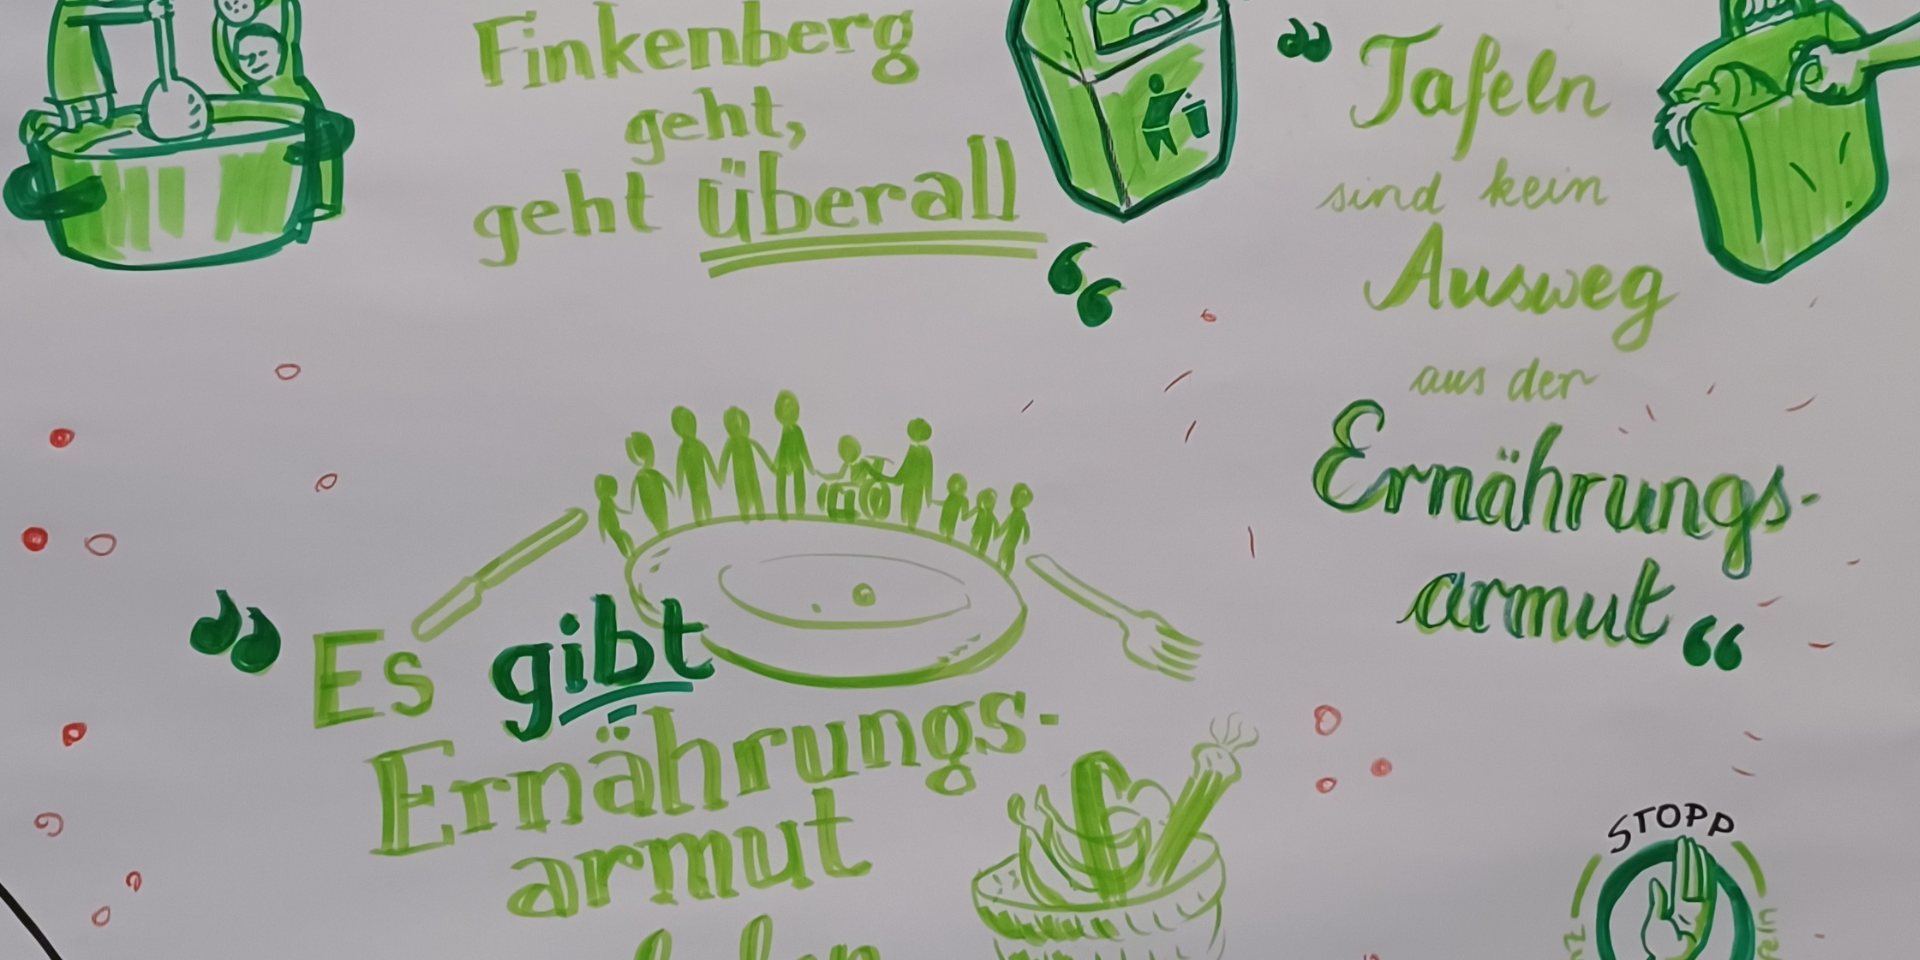 Finkenberg
geht,
geht überall“
„Tafeln
sind kein
Ausweg
aus der
Ernährungs-
armut“
„Es gibt
Ernährungs-
armut
STOPP